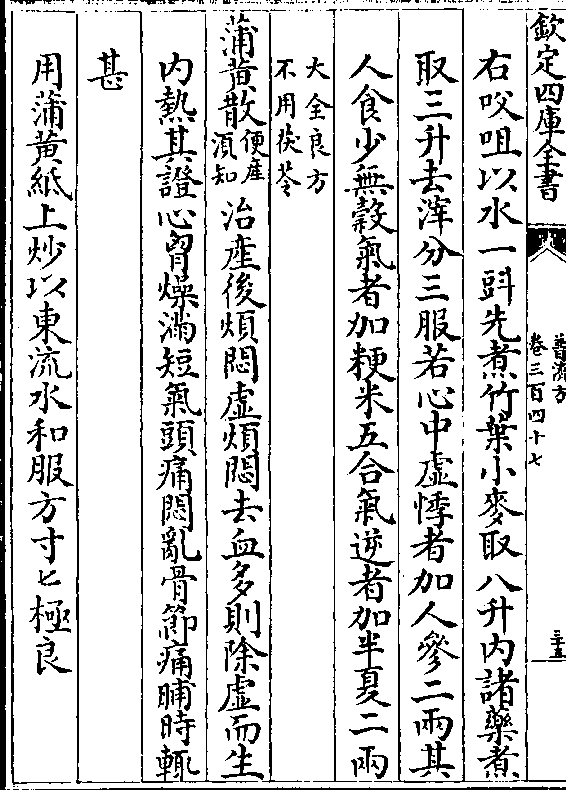 欽定四庫全書
普濟方
卷三百四十七
三十五
右㕮咀以水一㪷先煮竹葉小麥取八升内諸藥煮
取三升去滓分三服若心中虛悸者加人參二兩其
人食少無穀氣者加粳米五合氣逆者加半夏二兩
大全良方
不用茯苓
蒲黄散便産須知治産後煩悶虛煩悶去血多則除虛而生
内熱其證心胷燥滿短氣頭痛悶亂骨節痛晡時輒
甚
用蒲黄紙上炒以東流水和服方寸匕極良